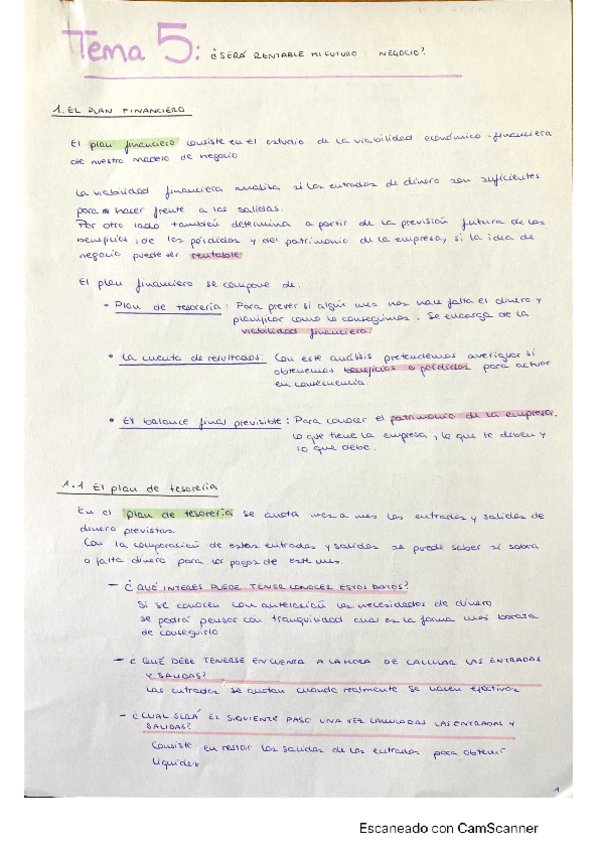 Tema 5: ¿SERÁ RENTABLE MI FUTURO NEGOCIO?
1. EL PLAN FINANCIERO
El plan financiero consiste en el estudio de la viabilidad económico-financiera
de nuestro modelo de negocio
La viabilidad financiera analiza si las entradas de dinero son suficientes
para hacer frente a las salidas.
Por otro lado también determina a partir de la previsión futura de los
beneficios, de las pérdidas y del patrimonio de la empresa, si la idea de
negocio puede ser rentable
El plan financiero se compone de:
• Plan de tesorería: Para prever si algún mes nos hace falta el dinero y
planificar como lo conseguimos. Se encarga de la
viabilidad financiera.
• La cuenta de resultados: Con este análisis pretendemos averiguar si
obtenemos beneficios o pérdidas para actuar
en consecuencia.
• El balance final previsible: Para conocer el patrimonio de la empresa.
lo que tiene la empresa, lo que le deben y
lo que debe.
1.1 El plan de tesorería
En el plan de tesorería se anota mes a mes las entradas y salidas de
dinero previstas.
Con la comparación de estas entradas y salidas se puede saber si sobra
o falta dinero para los pagos de este mes.
— ¿QUÉ INTERÉS PUEDE TENER CONOCER ESTOS DATOS?
Si se conocen con antelación las necesidades de dinero
se podrá pensar con tranquilidad cual es la forma más barata
de conseguirlo
— ¿QUÉ DEBE TENERSE EN CUENTA A LA HORA DE CALCULAR LAS ENTRADAS
Y SALIDAS?
Las entradas se anotan cuando realmente se hacen efectivas
— ¿CUAL SERÁ EL SIGUIENTE PASO UNA VEZ CALCULADAS LAS ENTRADAS Y
SALIDAS?
Consiste en restar las salidas de las entradas para obtener
liquidez
1
Escaneado con CamScanner